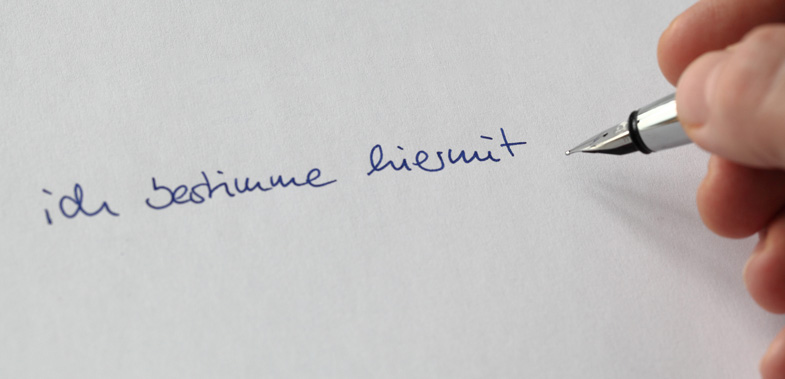 ich bestimme hiermit